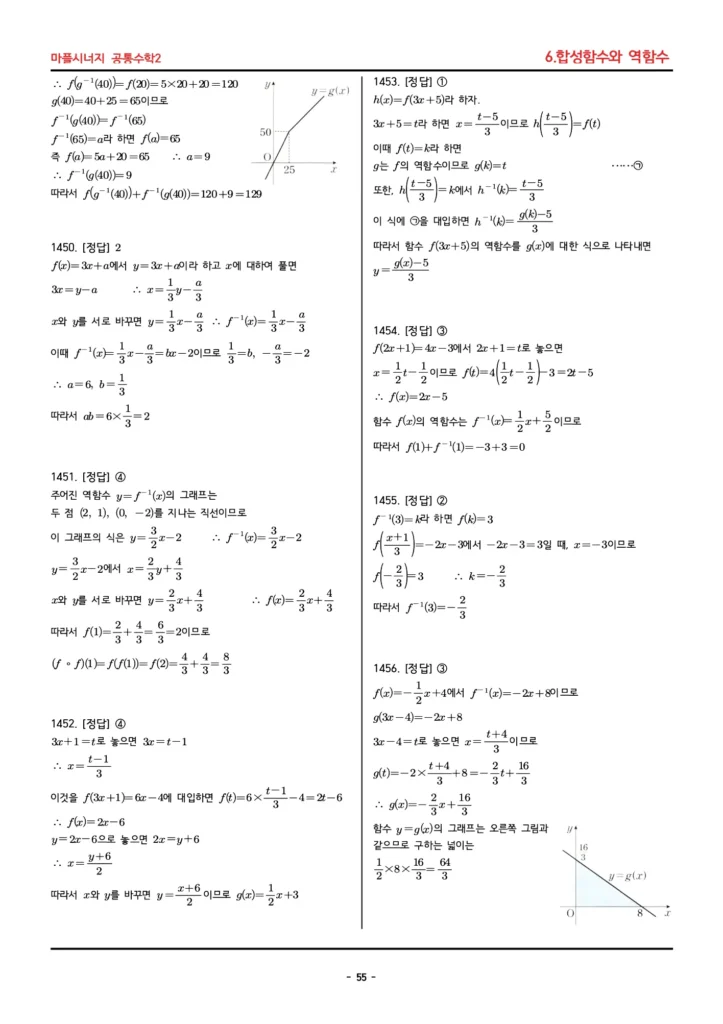 마플시너지 공통수학2
6.합성함수와 역함수
∴ f(g⁻¹(40))=f(20)=5×20+20=120
g(40)=40+25=65이므로
f⁻¹(g(40))=f⁻¹(65)
f⁻¹(65)=a라 하면 f(a)=65
즉 f(a)=5a+20=65 ∴ a=9
∴ f⁻¹(g(40))=9
따라서 f(g⁻¹(40))+f⁻¹(g(40))=120+9=129
y
y=g(x)
50
O
25
x
1450. [정답] 2
f(x)=3x+a에서 y=3x+a이라 하고 x에 대하여 풀면
3x=y-a ∴ x=1/3y-a/3
x와 y를 서로 바꾸면 y=1/3x-a/3 ∴ f⁻¹(x)=1/3x-a/3
이때 f⁻¹(x)=1/3x-a/3=bx-2이므로 1/3=b, -a/3=-2
∴ a=6, b=1/3
따라서 ab=6×1/3=2
1451. [정답] ④
주어진 역함수 y=f⁻¹(x)의 그래프는
두 점 (2, 1), (0, -2)를 지나는 직선이므로
이 그래프의 식은 y=3/2x-2 ∴ f⁻¹(x)=3/2x-2
y=3/2x-2에서 x=2/3y+4/3
x와 y를 서로 바꾸면 y=2/3x+4/3 ∴ f(x)=2/3x+4/3
따라서 f(1)=2/3+4/3=6/3=2이므로
(f∘f)(1)=f(f(1))=f(2)=4/3+4/3=8/3
1452. [정답] ④
3x+1=t로 놓으면 3x=t-1
∴ x=(t-1)/3
이것을 f(3x+1)=6x-4에 대입하면 f(t)=6×(t-1)/3-4=2t-6
∴ f(x)=2x-6
y=2x-6으로 놓으면 2x=y+6
∴ x=(y+6)/2
따라서 x와 y를 바꾸면 y=(x+6)/2이므로 g(x)=1/2x+3
1453. [정답] ①
h(x)=f(3x+5)라 하자.
3x+5=t라 하면 x=(t-5)/3이므로 h((t-5)/3)=f(t)
이때 f(t)=k라 하면
g는 f의 역함수이므로 g(k)=t ……㉠
또한, h((t-5)/3)=k에서 h⁻¹(k)=(t-5)/3
이 식에 ㉠을 대입하면 h⁻¹(k)=(g(k)-5)/3
따라서 함수 f(3x+5)의 역함수를 g(x)에 대한 식으로 나타내면
y=(g(x)-5)/3
1454. [정답] ③
f(2x+1)=4x-3에서 2x+1=t로 놓으면
x=1/2t-1/2이므로 f(t)=4(1/2t-1/2)-3=2t-5
∴ f(x)=2x-5
함수 f(x)의 역함수는 f⁻¹(x)=1/2x+5/2이므로
따라서 f(1)+f⁻¹(1)=-3+3=0
1455. [정답] ②
f⁻¹(3)=k라 하면 f(k)=3
f((x+1)/3)=-2x-3에서 -2x-3=3일 때, x=-3이므로
f(-2/3)=3 ∴ k=-2/3
따라서 f⁻¹(3)=-2/3
1456. [정답] ③
f(x)=-1/2x+4에서 f⁻¹(x)=-2x+8이므로
g(3x-4)=-2x+8
3x-4=t로 놓으면 x=(t+4)/3이므로
g(t)=-2×(t+4)/3+8=-2/3t+16/3
∴ g(x)=-2/3x+16/3
함수 y=g(x)의 그래프는 오른쪽 그림과
같으므로 구하는 넓이는
1/2×8×16/3=64/3
y
16/3
y=g(x)
O
8
x
- 55 -